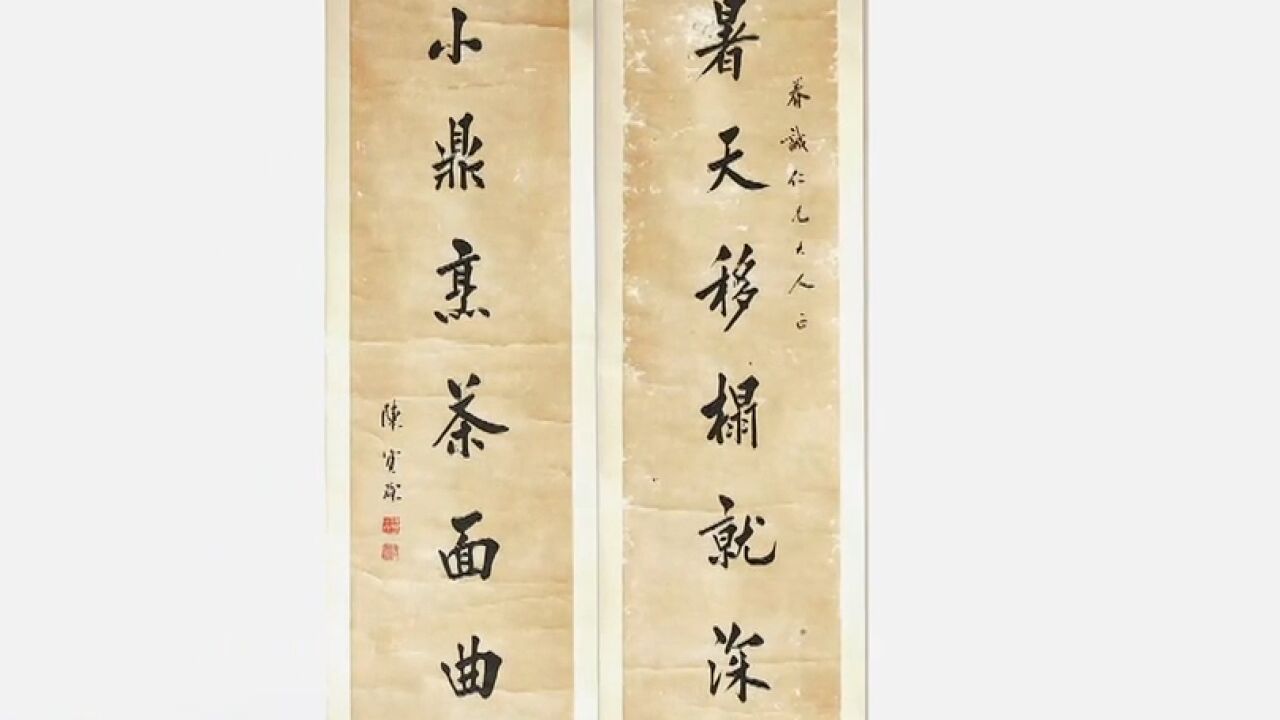 暑天移榻就深
春誠仁兄大人正
小鼎烹茶面曲
陳寶琛